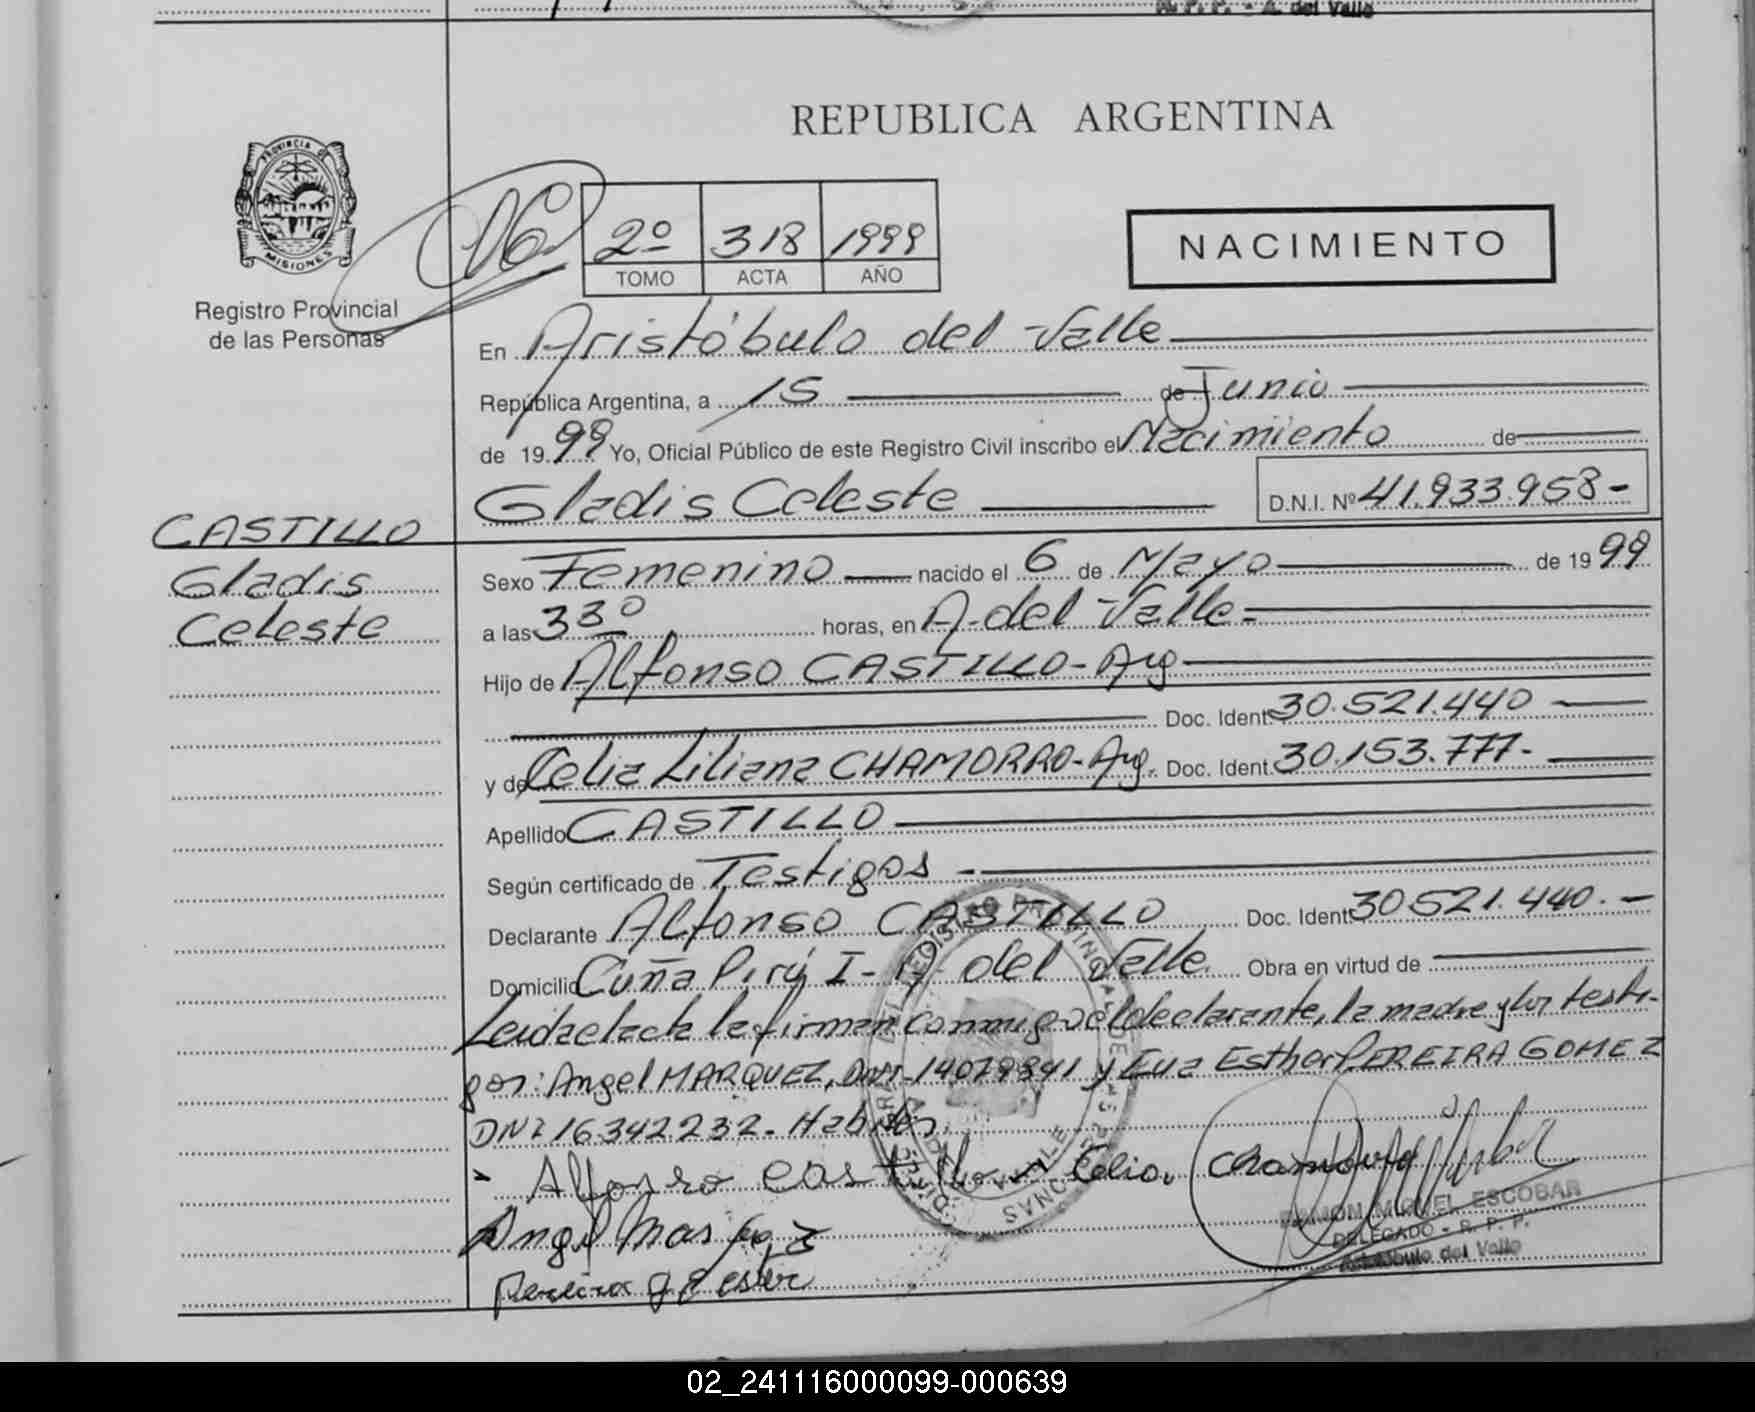 A. del Valle
REPUBLICA ARGENTINA
PROVINCIA DE
MISIONES
Registro Provincial
de las Personas
16
2º 318 1999
TOMO ACTA AÑO
NACIMIENTO
En Aristóbulo del Valle
República Argentina, a 15 de Junio
de 1999 Yo, Oficial Público de este Registro Civil inscribo el Nacimiento de
Gladis Celeste D.N.I. Nº 41.933.958-
CASTILLO
Gladis
Celeste
Sexo Femenino nacido el 6 de Mayo de 1999
a las 3 30 horas, en A. del Valle-
Hijo de Alfonso CASTILLO-Arg
Doc. Ident. 30.521.440
y de Celia Liliana CHAMORRO-Arg. Doc. Ident. 30.153.777-
Apellido CASTILLO
Según certificado de Testigos -
Declarante Alfonso CASTILLO Doc. Ident. 30521.440.-
Domicilio Cuña Pirú I- A. del Valle Obra en virtud de
Leida el acta la firman conmigo el declarante, la madre y los testi-
gos: Angel MARQUEZ, DNI-14079841 y Eva Esther PEREIRA GOMEZ
DNI 16342232- Habiles
Alfonso Castillo Celia Chamorro
RAMON MIGUEL ESCOBAR
DELEGADO - R. P. P.
Aristóbulo del Valle
02_241116000099-000639